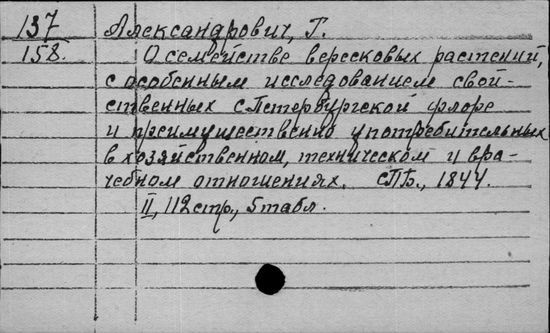 137 Александрович, Г.
158. О семействе вересковых растений,
с особенным исследованием свой-
ственных с Петербургской флоре
и преимущественно употребительных
в хозяйственном, техническом и вра-
чебном отношениях. СПБ., 1844.
II, 112 стр., 5 табл.